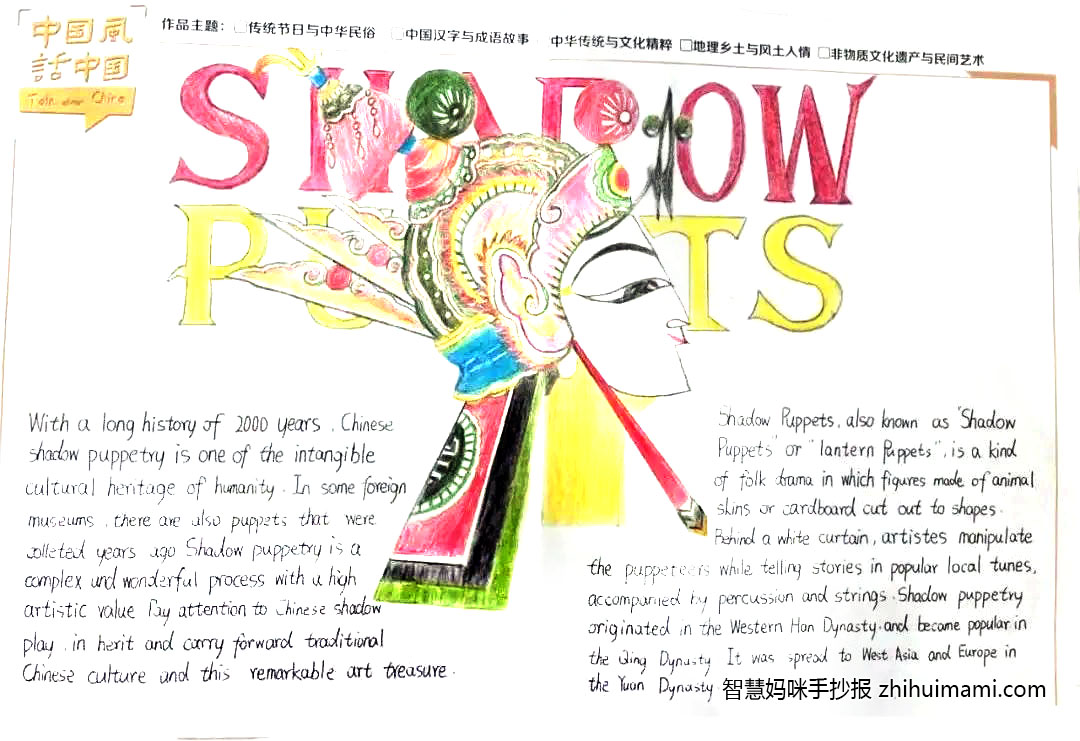 中国風
話中国
作品主题：□传统节日与中华民俗 □中国汉字与成语故事 中华传统与文化精粹 □地理乡土与风土人情 □非物质文化遗产与民间艺术
SHADOW
PUPPETS
With a long history of 2000 years . Chinese
shadow puppetry is one of the intangible
cultural heritage of humanity . In some foreign
museums , there are also puppets that were
colleted years ago Shadow puppetry is a
complex and wonderful process with a high
artistic value Pay attention to Chinese shadow
play . in herit and carry forward traditional
Chinese culture and this remarkable art treasure .
Shadow Puppets, also known as "Shadow
Puppets" or "lantern Puppets", is a kind
of folk drama in which figures made of animal
skins or cardboard cut out to shapes.
Behind a white curtain, artistes manipulate
the puppeteers while telling stories in popular local tunes,
accompanied by percussion and strings. Shadow puppetry
originated in the Western Han Dynasty. and become popular in
the Qing Dynasty It was spread to West Asia and Europe in
the Yuan Dynasty.
智慧妈咪手抄报 zhihuimami.com